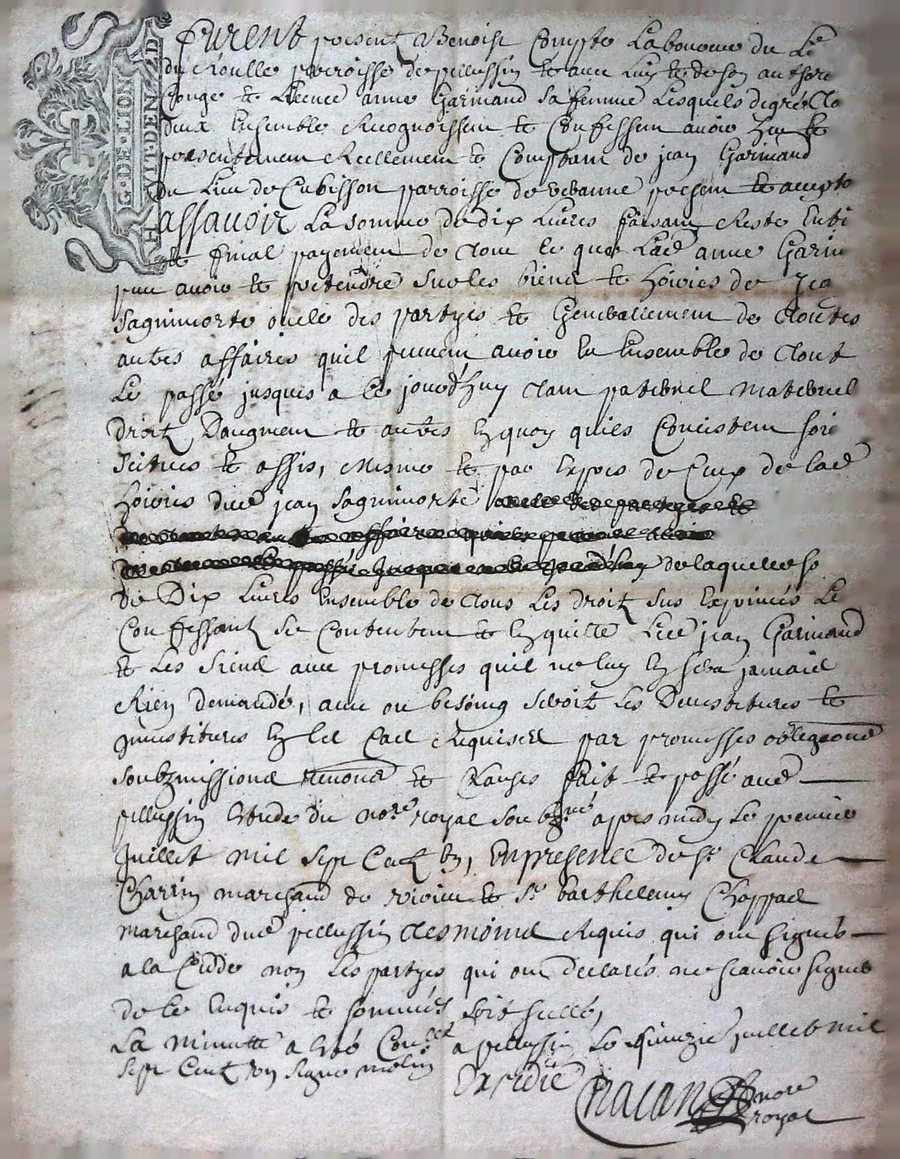 G · DE · LION
HVIT · DEN · 2 · D
Furent present Benoist Compte Laboureur du L
du parroisse de pellussin et avec luy et de son authori
Conge et licence anne Garmand sa femme Lesquels de gré
deux Ensemble Recognoissent et Confessent avoir heu et
presentement Reellement et Comptant de jean Garimand
du Lieu de Cubisson parroisse de present et accepta
assavoir La somme de dix Livres faisant Reste
et final payement de tout ce que Lad anne Garim
peut avoir et pretendre sur les biens et hoiries de Jea
Saguimorte des partyes et Generallement de toutes
autres affaires qu'il peuvent avoir Eu Ensemble de tout
Le passé jusques a ce jourd'huy tant paternel maternel
droit D'augment et autres En quoy qu'ils Concistent soit
scitués et assis, mesme et par Expres de Ceux de lad
hoirie dud jean Saguimorte
de laquelle so
de Dix Livres Ensemble de tous Les droit sus Exprimés Le
Confessant se Contentent et En quitte Led jean Garimand
et Les siens avec promesses qu'il ne luy En sera jamais
Rien demandé, avec ou besoing seroit Les Devestitures et
Jnvestitures En tel Cas Requises par promesses obligaons
soubzmissions renons et Clauses fait et passé aud
pellussin Estude du nore royal soubzné apres midy Le premier
Juillet mil sept Cent En presence de sr Claude
Charrin marchand de et sr barthelemy Chappad
marchand dud pellussin tesmoins Requis qui ont signés
a la Cedde non Les partyes qui ont declarés ne scavoir signer
de ce Enquis et sommés soit sellé,
La minutte a Esté Conllé a pellussin Le quinzie juillet mil
sept Cent signé molin
Expedié
nore
royal